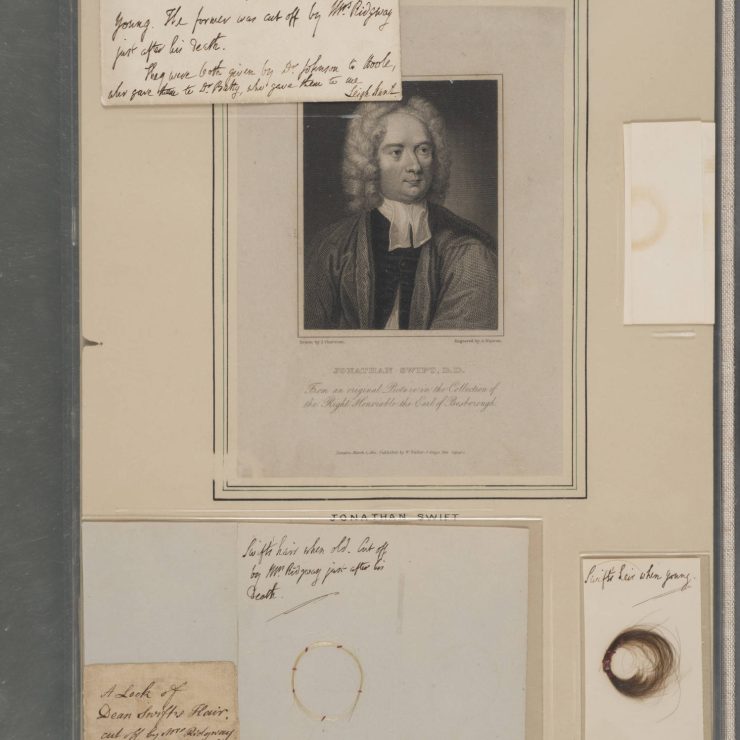 Young. The former was cut off by Mrs Ridgway
just after his death.
They were both given by Dr. Johnson to Hoole,
who gave them to Dr Batty, who gave them to me
Leigh Hunt
Engraved by
JONATHAN SWIFT, D.D.
From an original Picture in the Collection of
the Right Honorable the Earl of Besborough.
London, March 1, Published by W. Walker
JONATHAN SWIFT
Swift's hair when old. Cut off
by Mrs Ridgway just after his
Death.
Swift's hair when young.
A Lock of
Dean Swift's Hair,
cut off by Mrs Ridgway